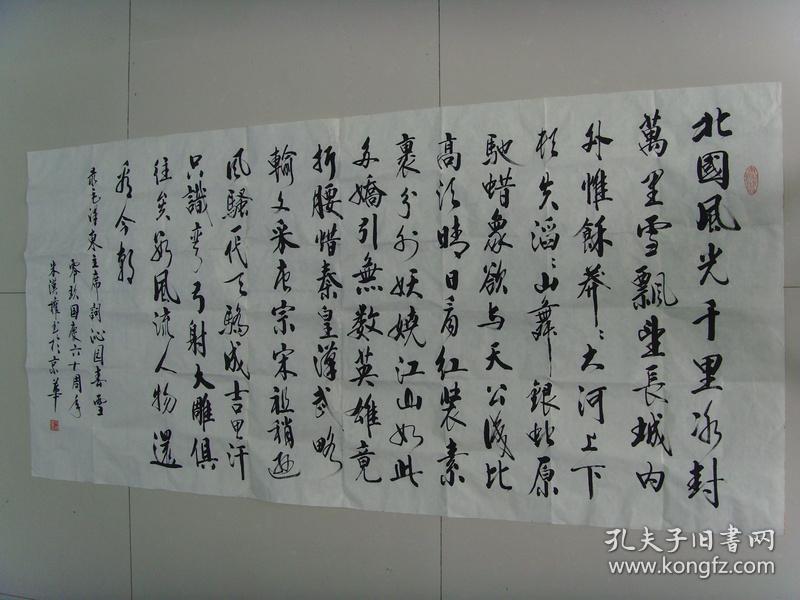 北國風光千里冰封
萬里雪飄望長城內
外惟餘莽〻大河上下
頓失滔〻山舞銀蛇原
馳蜡象欲与天公試比
高須晴日看紅裝素
裹分外妖嬈江山如此
多嬌引無數英雄竟
折腰惜秦皇漢武略
輸文采唐宗宋祖稍遜
風騷一代天驕成吉思汗
只識彎弓射大雕俱
往矣數風流人物還
看今朝
录毛澤東主席詞沁園春雪
零玖国慶六十周年
朱漢權書於京華
孔夫子旧书网
www.kongfz.com